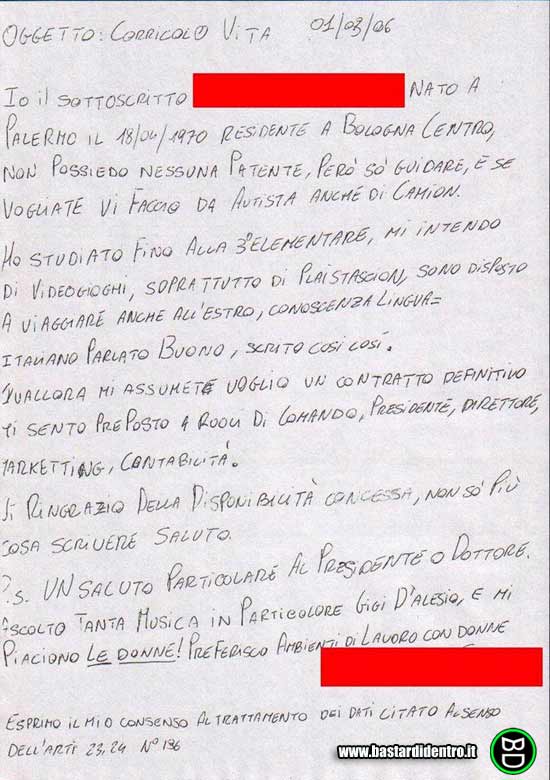 OGGETTO: CORRICOLO VITA 01/03/06
IO IL SOTTOSCRITTO NATO A
PALERMO IL 18/04/1970 RESIDENTE A BOLOGNA CENTRO,
NON POSSIEDO NESSUNA PATENTE, PERÒ SÒ GUIDARE, E SE
VOGLIATE VI FACCIO DA AUTISTA ANCHE DI CAMION.
HO STUDIATO FINO ALLA 3° ELEMENTARE, MI INTENDO
DI VIDEOGIOGHI, SOPRATTUTTO DI PLAISTASCION, SONO DISPOSTO
A VIAGGIARE ANCHE ALL'ESTRO, CONOSCENZA LINGUA=
ITALIANO PARLATO BUONO, SCRITO COSÌ COSÌ.
QUALLORA MI ASSUMETE VOGLIO UN CONTRATTO DEFINITIVO
MI SENTO PREPOSTO A RUOLI DI COMANDO, PRESIDENTE, DIRETTORE,
MARKETTING, CONTABILITÀ.
VI RINGRAZIO DELLA DISPONIBILITÀ CONCESSA, NON SÒ PIÙ
COSA SCRIVERE SALUTO.
P.S. UN SALUTO PARTICOLARE AL PRESIDENTE O DOTTORE.
ASCOLTO TANTA MUSICA IN PARTICOLORE GIGI D'ALESIO, E MI
PIACIONO LE DONNE! PREFERISCO AMBIENTI DI LAVORO CON DONNE
ESPRIMO IL MIO CONSENSO AL TRATTAMENTO DEI DATI CITATO AL SENSO
DELL'ARTI 23,24 N° 196
www.bastardidentro.it
BD